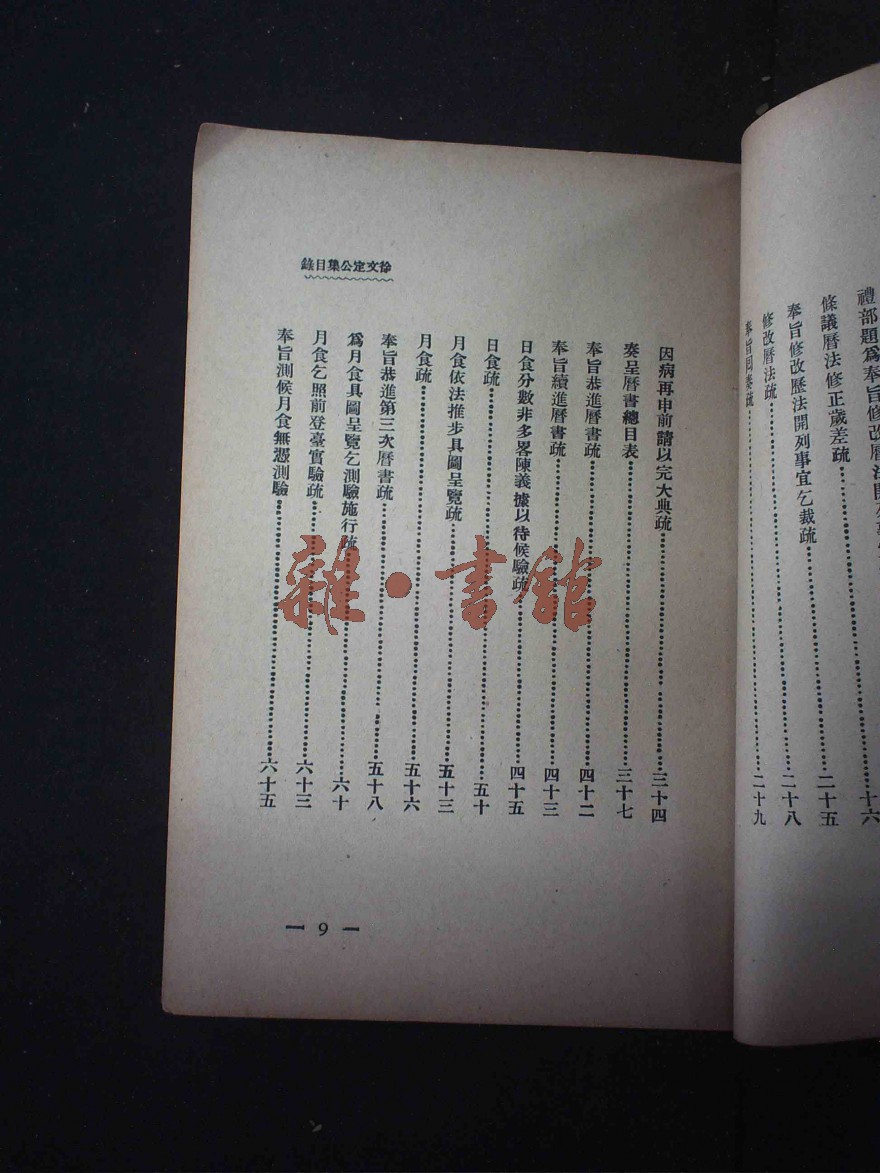 禮部題為奉旨修改曆法開列事
十六
條議曆法修正歲差疏……二十五
奉旨修改歷法開列事宜乞裁疏……二十八
修改曆法疏
奉旨回奏疏……二十九
徐文定公集目錄
因病再申前請以完大典疏……三十四
奏呈曆書總目表……三十七
奉旨恭進曆書疏……四十二
奉旨續進曆書疏……四十三
日食分數非多畧陳義據以待候驗疏……四十五
日食疏……五十
月食依法推步具圖呈覽疏……五十三
月食疏……五十六
奉旨恭進第三次曆書疏……五十八
爲月食具圖呈覽乞測驗施行疏……六十
月食乞照前登臺實驗疏……六十三
奉旨測候月食無憑測驗……六十五
— 9 —
雜·書館